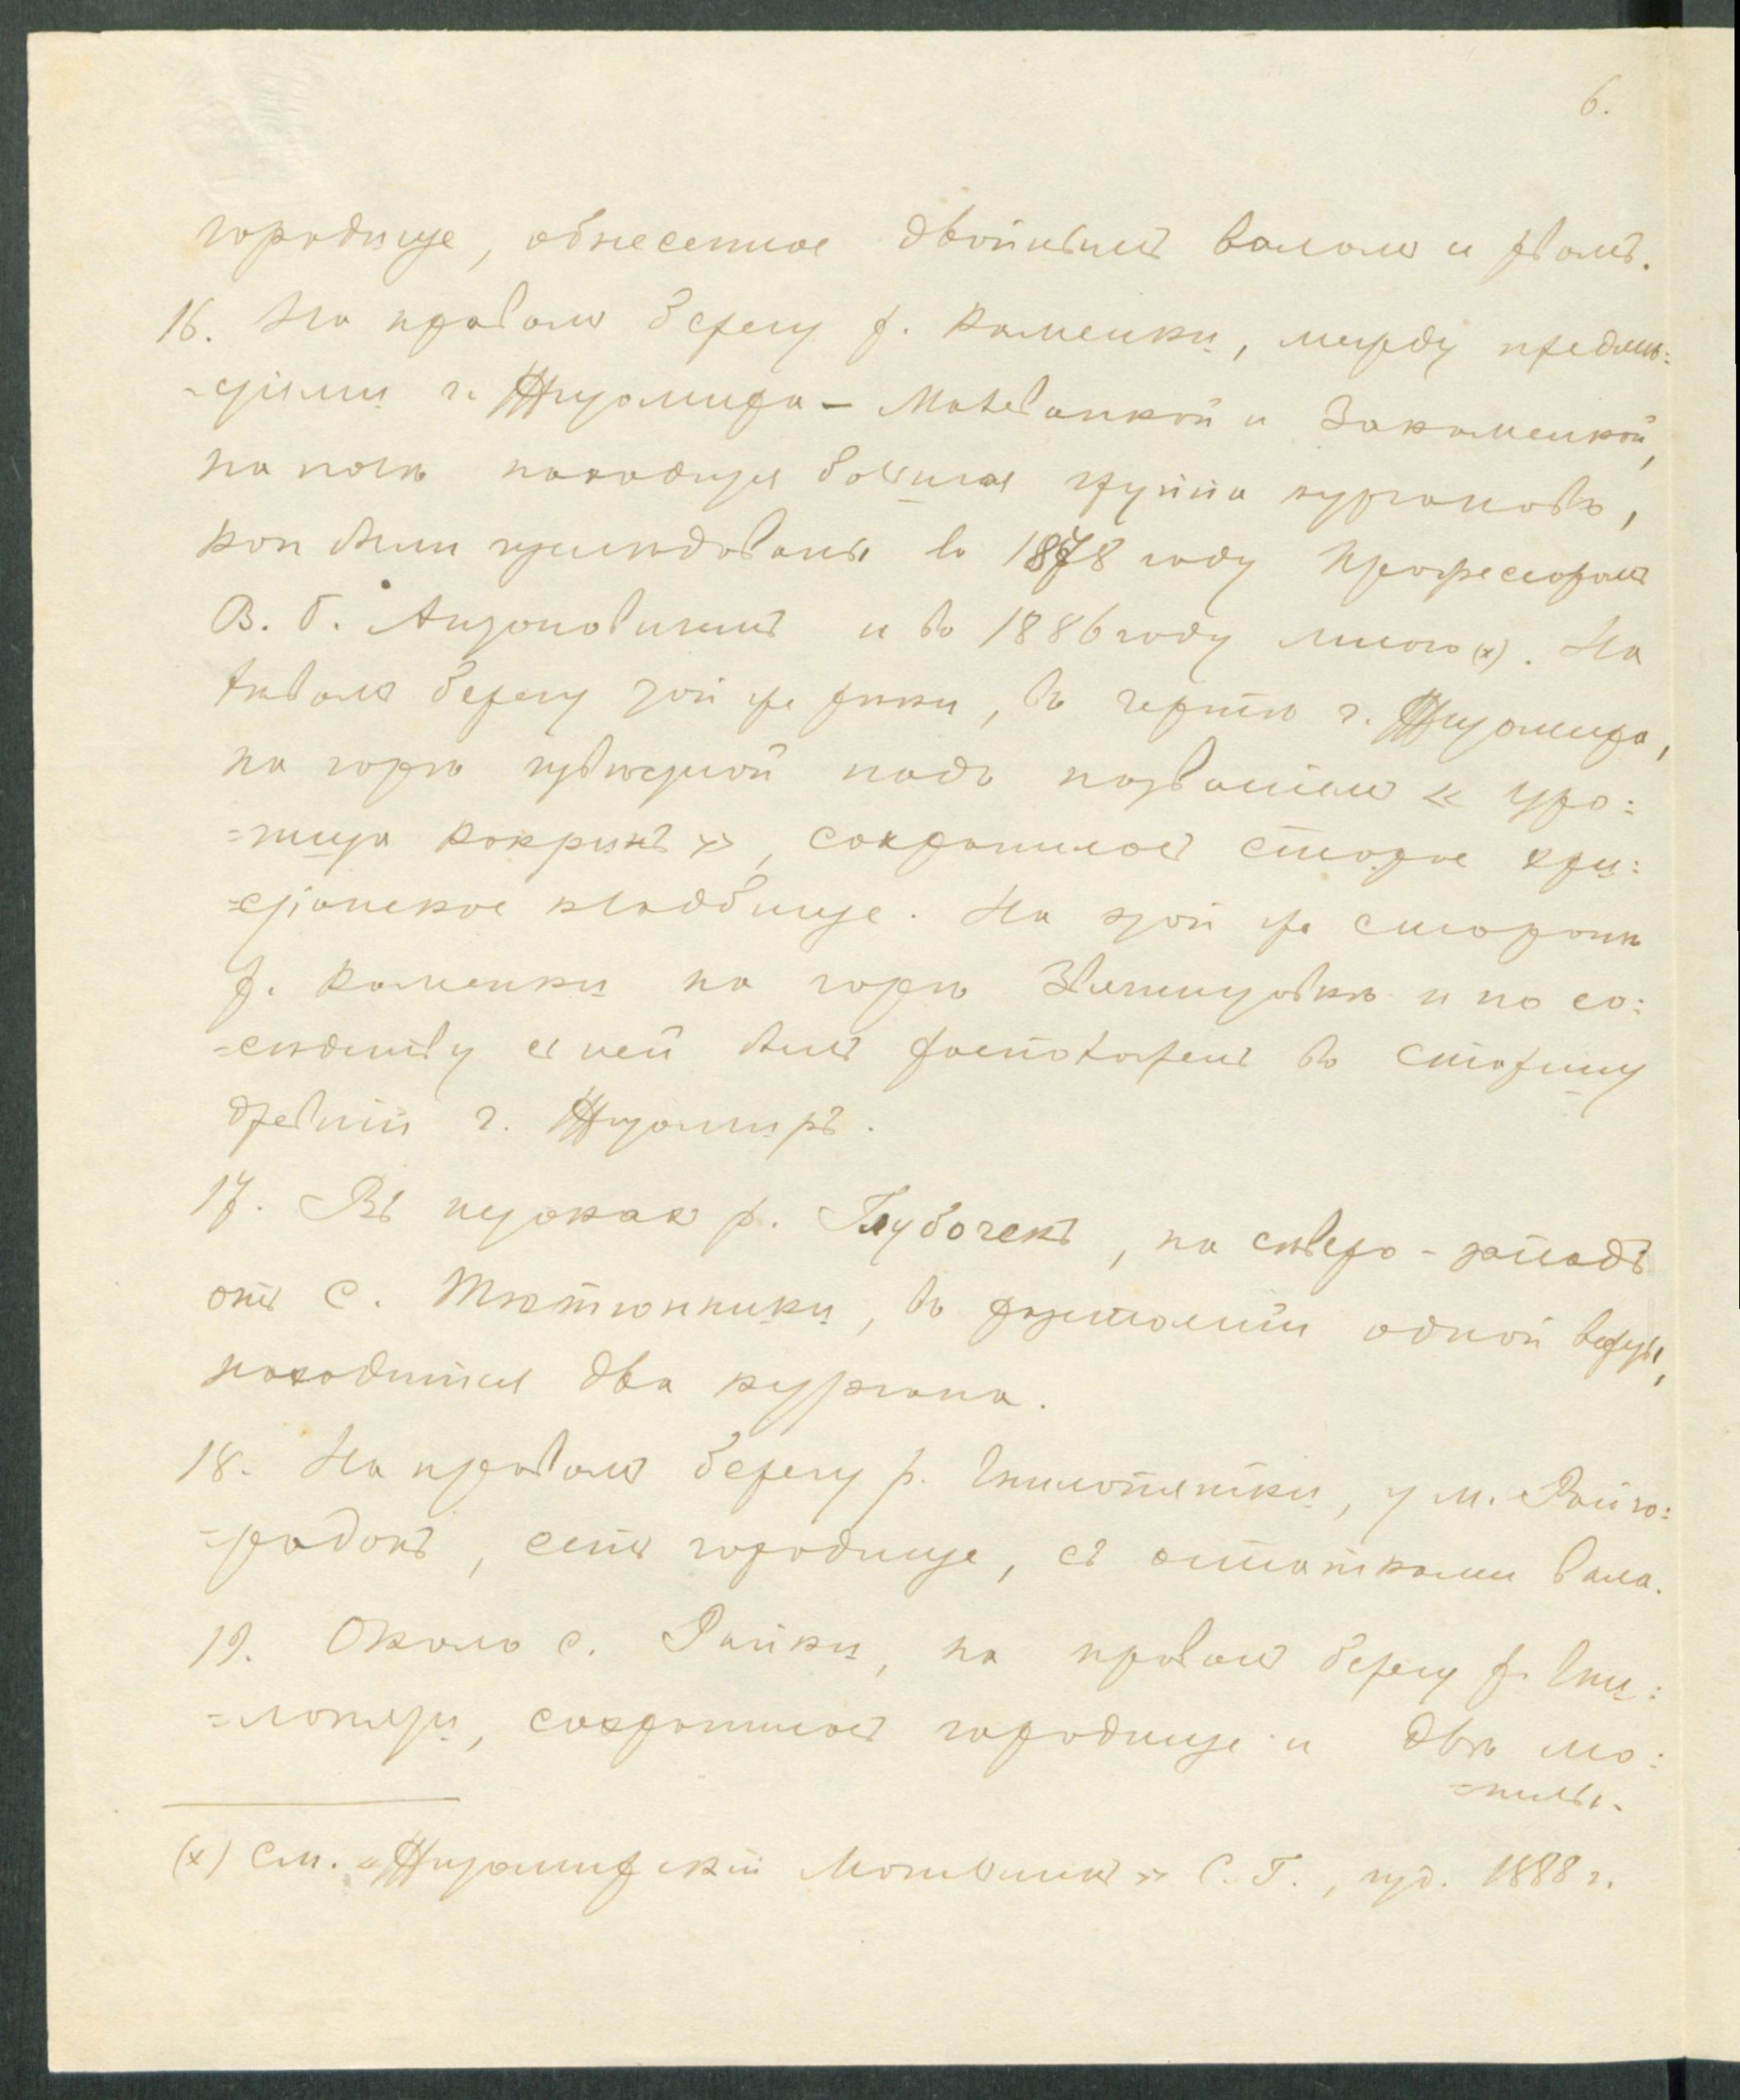 6.
городище, обнесенное двойнымъ валомъ и рвомъ.
16. На правомъ берегу р. Каменки, между предмѣ:
=стіями г. Житомира – Мальванкой и Закаменкой,
на полѣ находится большая группа кургановъ,
кои были изслѣдованы въ 1878 году Профессоромъ
В. Б. Антоновичемъ и въ 1886 году мною (х). На
лѣвомъ берегу той же рѣки, въ чертѣ г. Житомира,
на горѣ извѣстной подъ названіемъ « уро:
=чища Кокришъ », сохранилось старое хри:
=стіанское кладбище. На этой же сторонѣ
р. Каменки на горѣ и по со:
=сѣдству съ ней былъ расположенъ въ старину
древній г. Житомиръ.
17. Въ истокахъ р. Глубочекъ, на сѣверо-западъ
отъ с. Тютюнники, въ разстояніи одной версты,
находится два кургана.
18. На правомъ берегу р. Гнилопятки, у м. Райго:
=родокъ, есть городище, съ остатками вала.
19. Около с. Райки, на правомъ берегу р. Гни:
=лопяти, сохранилось городище и двѣ мо:
=гилы.
(х) См. «Житомирскій Могильникъ» С. Г., изд. 1888 г.